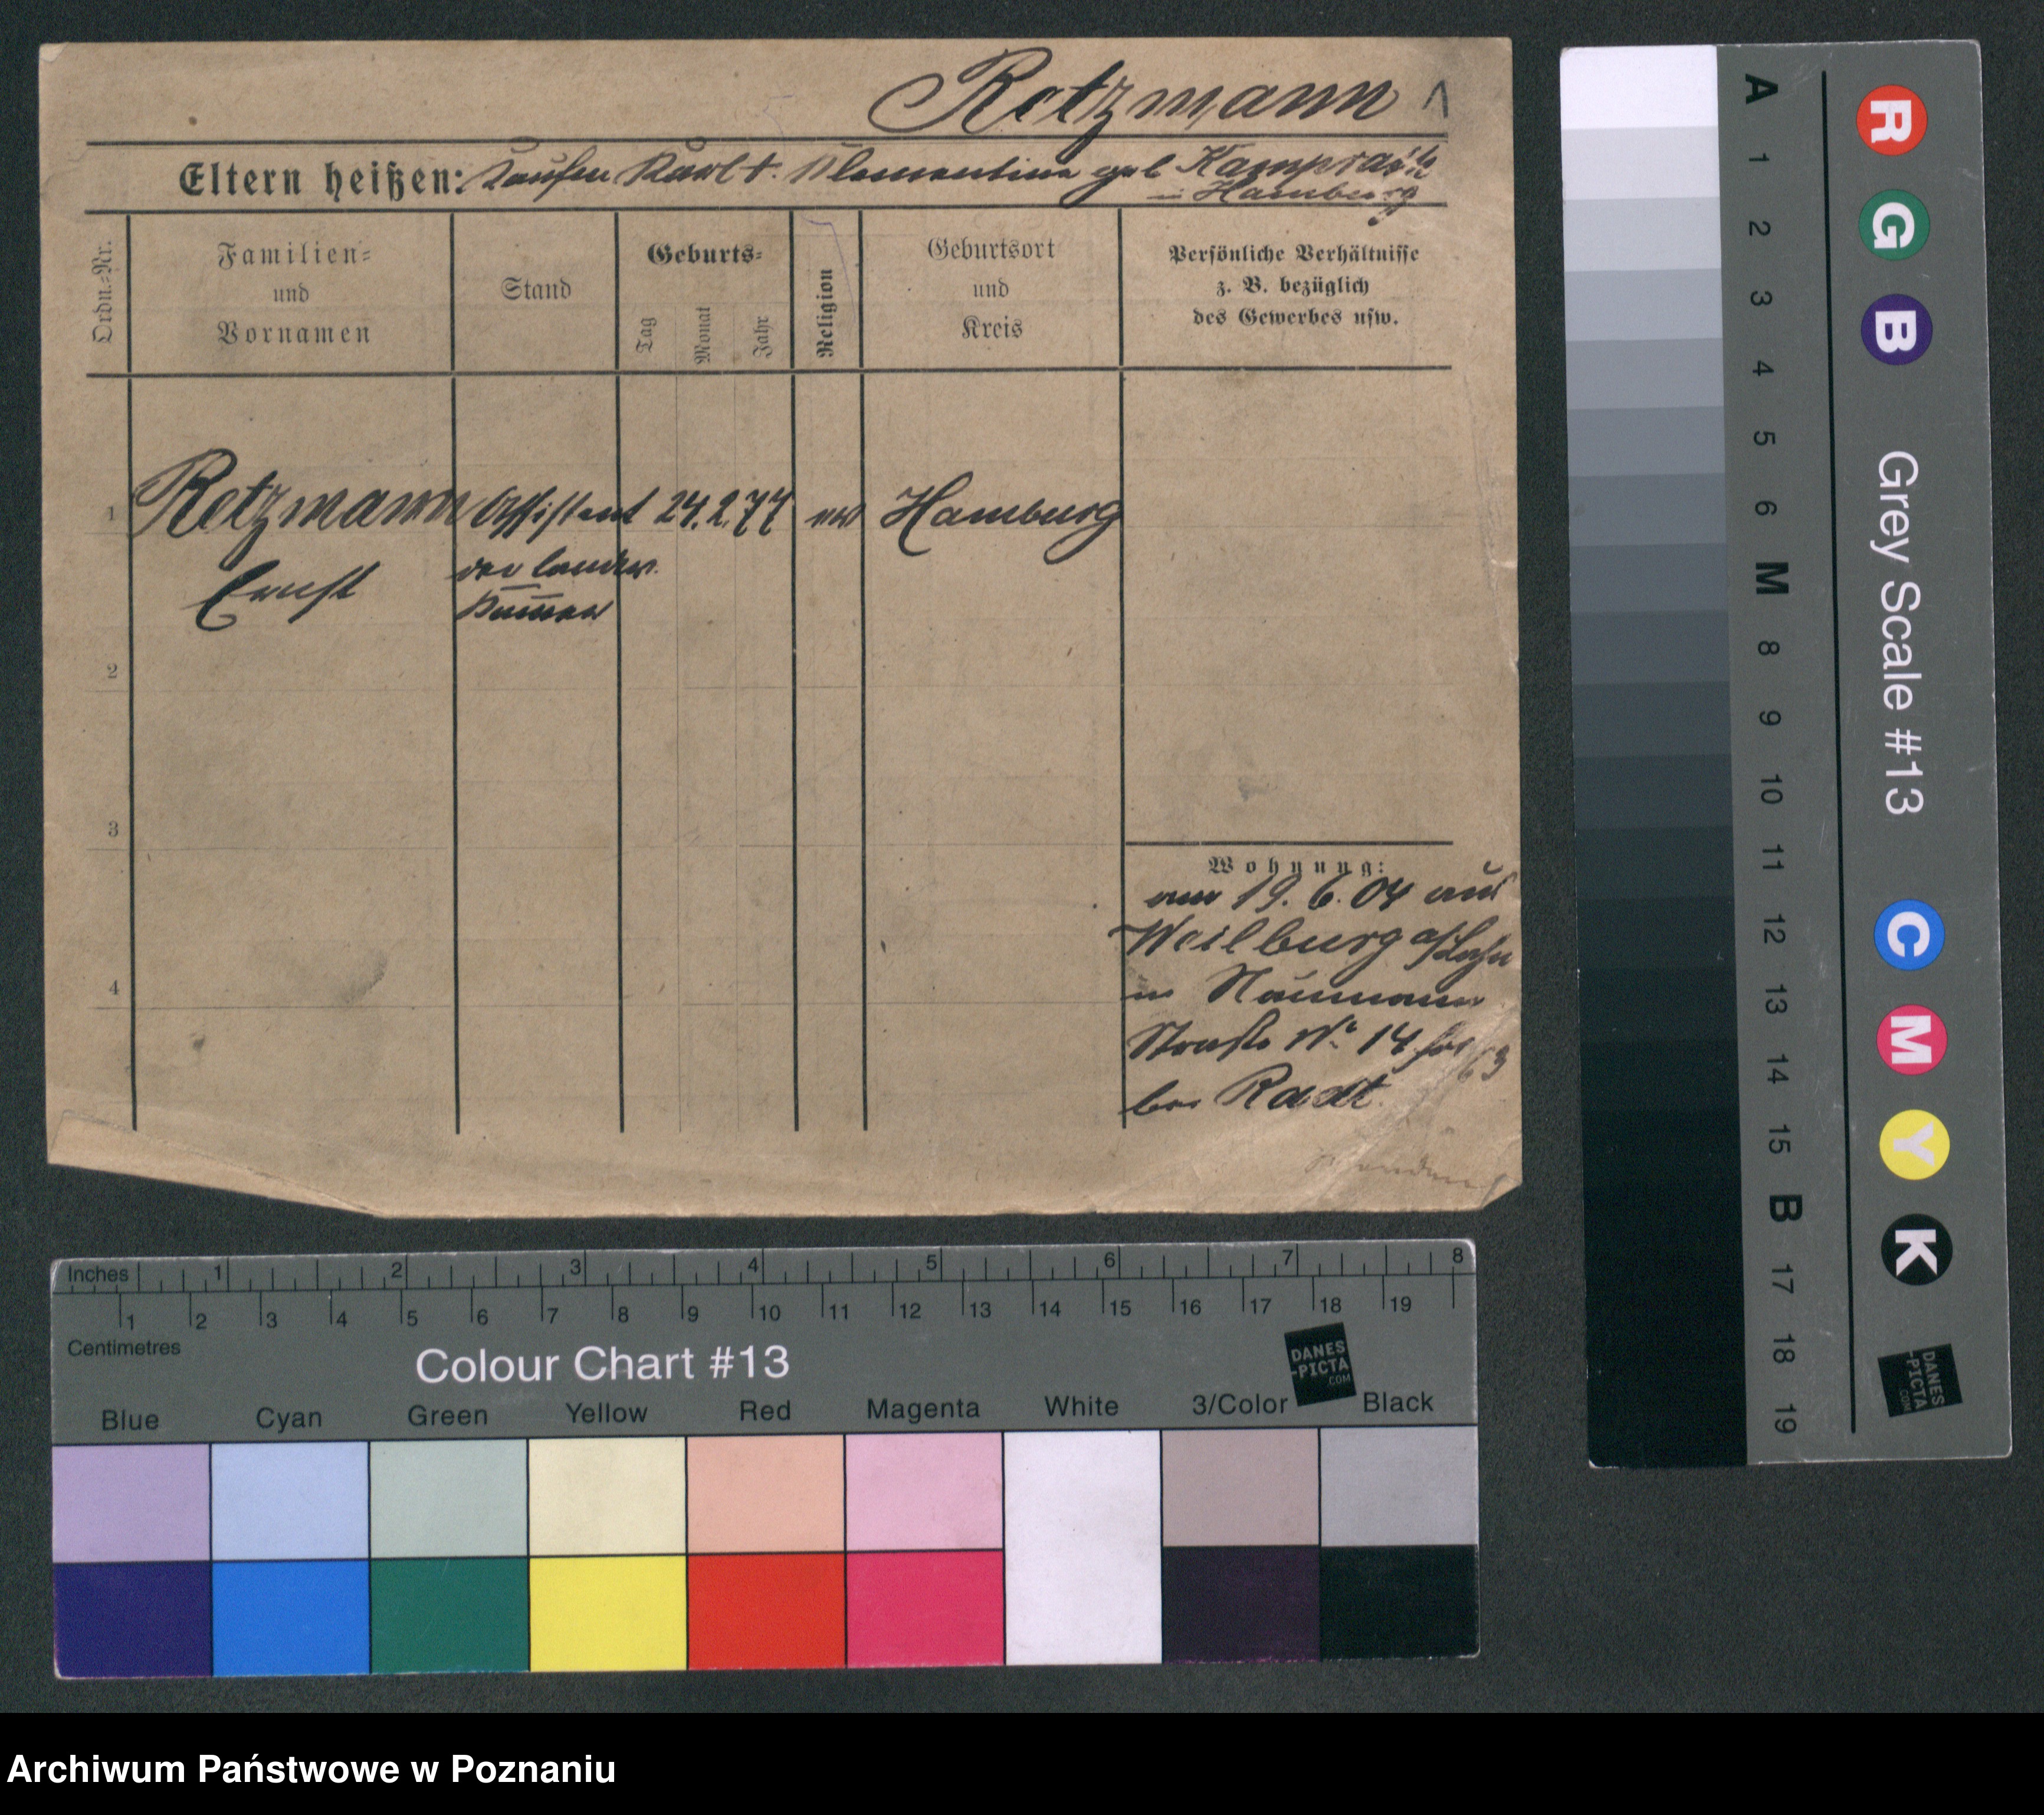 Retzmann
Eltern heißen: Karl †. Klementine geb Kamprath
in Hamburg
Ordn.-Nr.
Familien-
und
Vornamen
Stand
Geburts-
Tag
Monat
Jahr
Religion
Geburtsort
und
Kreis
Persönliche Verhältnisse
z. B. bezüglich
des Gewerbes usw.
1 Retzmann Assistent 24. 2. 77 ev Hamburg
Ernst der landw.
Kammer
2
3
4
Wohnung:
am 19. 6. 04 aus
Weilburg a/Lahn
in Naumann
Straße No 14
bei Radt.
A 1 2 3 4 5 6 M 8 9 10 11 12 13 14 15 B 17 18 19
R G B Grey Scale #13 C M Y K
DANES
-PICTA
.COM
Inches 1 2 3 4 5 6 7 8
1 2 3 4 5 6 7 8 9 10 11 12 13 14 15 16 17 18 19
Centimetres
Colour Chart #13
DANES
-PICTA
.COM
Blue Cyan Green Yellow Red Magenta White 3/Color Black
Archiwum Państwowe w Poznaniu